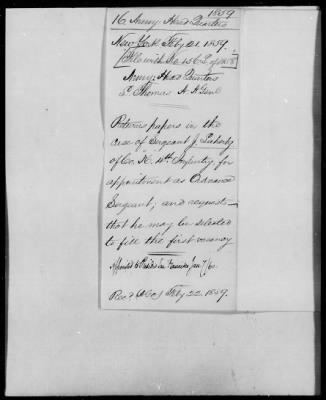 1859
16 Army Head Quarters
New York Feby 21. 1859.
[File with No 156 P. of 1858]
Army: Head Quarters
Thomas A. A. Genl
Returns papers in the
case of Sergeant J.
of Co. K. 4th Infantry, for
appointment as Ordnance
Sergeant; and requests
that he may be selected
to fill the first vacancy
Appointed Jan 7/60
Recd (AGO) Feby 22. 1859.